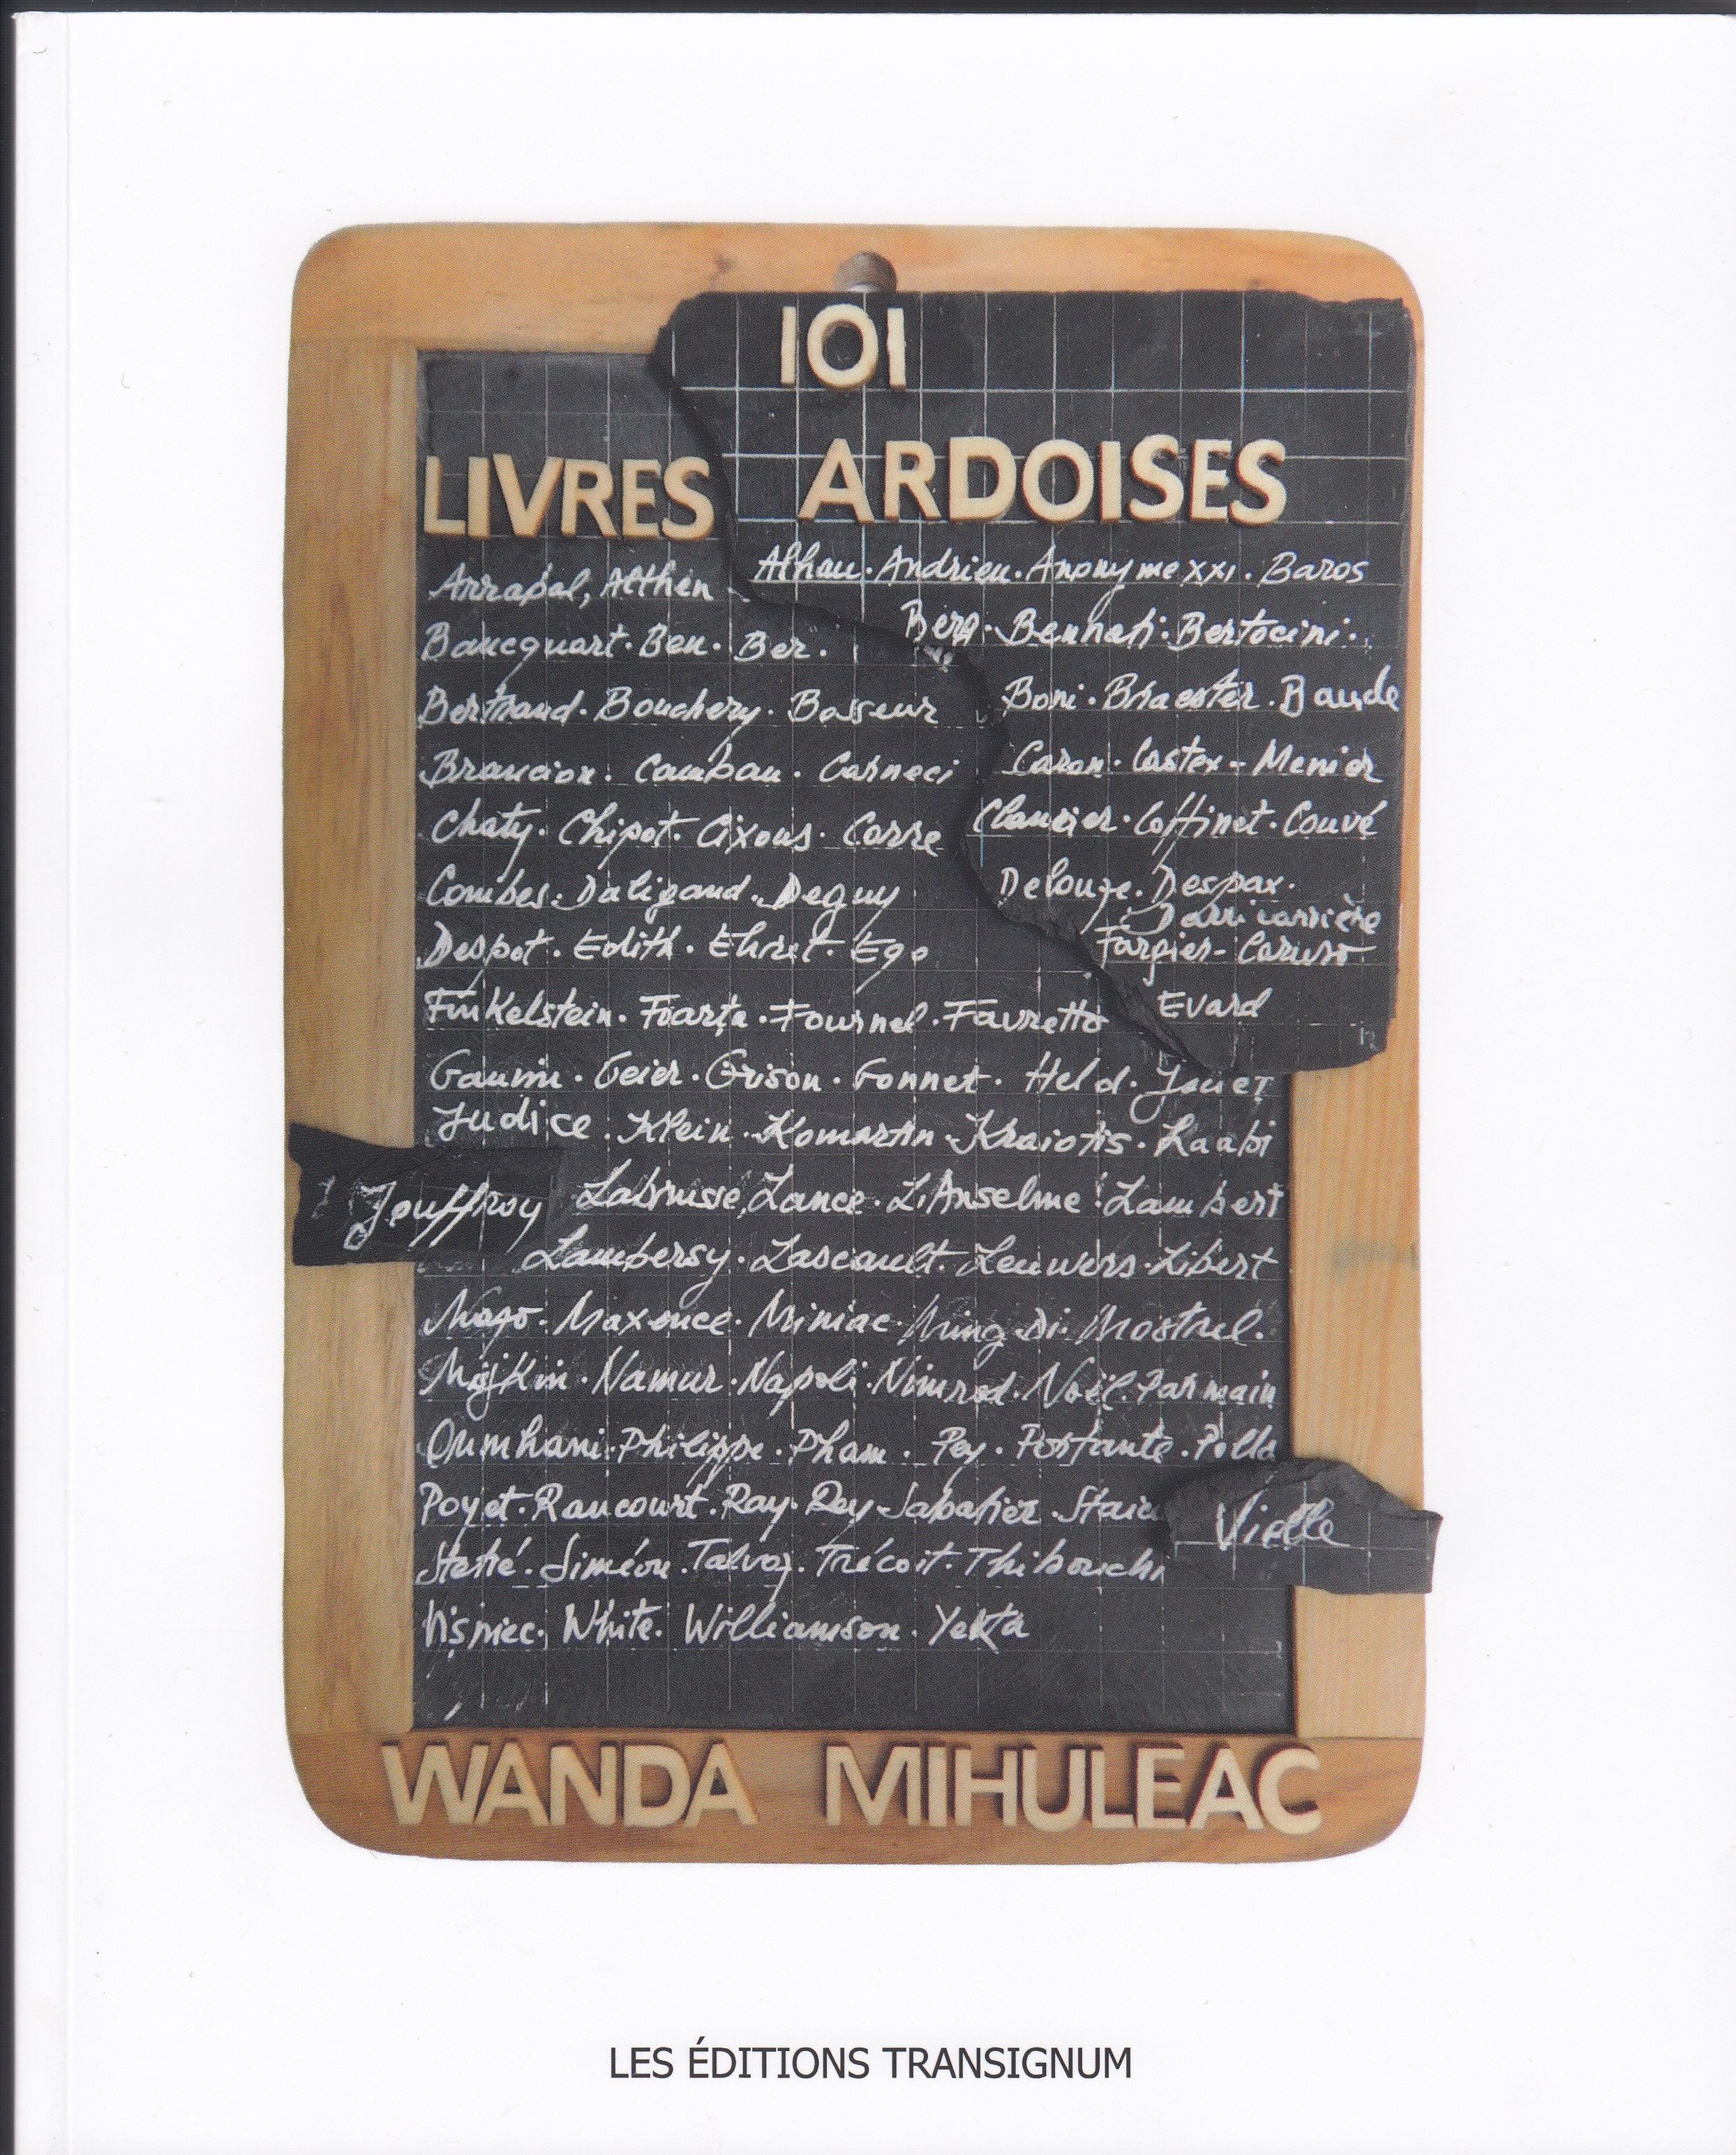 101
LIVRES ARDOISES
Arrabal, Althen Alhau. Andrieu. Anonyme XXI. Baros
Bancquart. Ben. Ber. Berg. Bennati. Bertocini.
Bertrand. Bouchery. Bosseur Boni. Braester. Baude
Brancion. Cambau. Carneci Caron. Castex-Menier
Chaty. Chipot. Cixous. Corre Clancier. Coffinet. Couvé
Combes. Daligand. Deguy Delouze. Despax.
Darricarrère
Despot. Edith. Ehret. Ego Fargier-Caruso.
Finkelstein. Foarţa. Fournel. Favretto Evard
Gaumi. Geier. Grison. Gonnet. Held. Jouet
Judice. Klein. Komartin. Kraiotis. Laabi
Jouffroy Labrusse, Lance. L'Anselme. Lambert
Lambersy. Lascault. Leuwers. Libert
Mago. Maxence. Miniac. Ming Di. Mostrel.
Namur. Napoli. Nimrod. Noël. Parmain
Oumhani. Philippe. Pham. Pey. Portante. Polla
Poyet. Raucourt. Ray. Rey. Sabatier.
Vielle
Stétié. Siméon. Talvaz. Trécoit.
Visniec. White. Williamson. Yekta
WANDA MIHULEAC
LES ÉDITIONS TRANSIGNUM